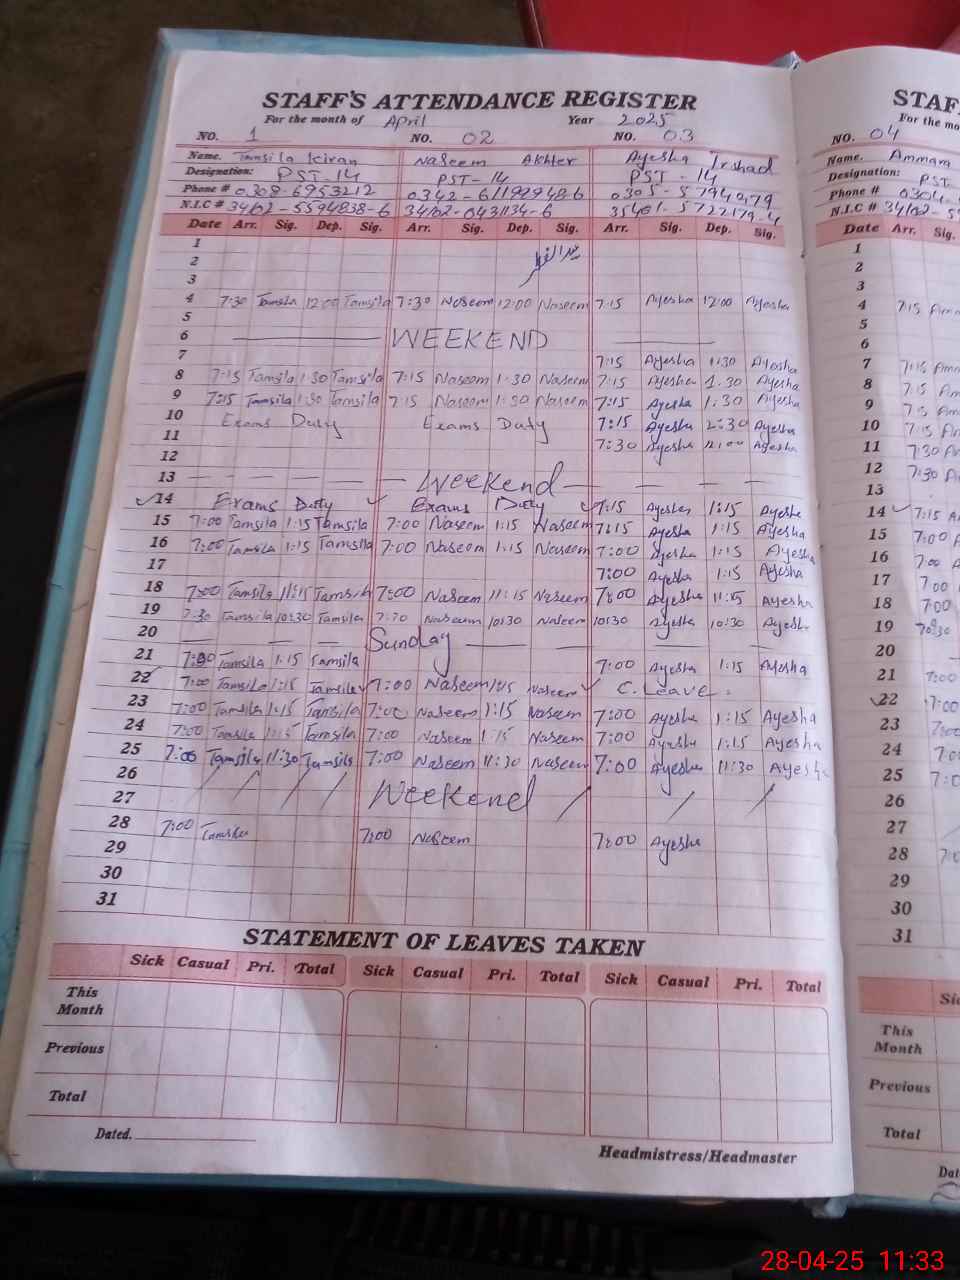 STAFF'S ATTENDANCE REGISTER
For the month of April Year 2025
NO. 1 NO. 02 NO. 03
Name. Tamsila Kiran Naseem Akhter Ayesha Irshad
Designation: PST-14 PST-14 PST-14
Phone # 0308-6953212
N.I.C # 34102-5594838-6 34102-0431134-6
Date Arr. Sig. Dep. Sig. Arr. Sig. Dep. Sig. Arr. Sig. Dep. Sig.
1
2
3
4 7:30 Tamsila 12:00 Tamsila 7:30 Naseem 12:00 Naseem 7:15 Ayesha 12:00 Ayesha
5
6 WEEKEND
7 7:15 Ayesha 1:30 Ayesha
8 7:15 Tamsila 1:30 Tamsila 7:15 Naseem 1:30 Naseem 7:15 Ayesha 1:30 Ayesha
9 7:15 Tamsila 1:30 Tamsila 7:15 Naseem 1:30 Naseem 7:15 Ayesha 1:30 Ayesha
10 Exams Duty Exams Duty 7:15 Ayesha 2:30 Ayesha
11 7:30 Ayesha 12:00 Ayesha
12
13 Weekend
14 Exams Duty Exams Duty 7:15 Ayesha 1:15 Ayesha
15 7:00 Tamsila 1:15 Tamsila 7:00 Naseem 1:15 Naseem 7:15 Ayesha 1:15 Ayesha
16 7:00 Tamsila 1:15 Tamsila 7:00 Naseem 1:15 Naseem 7:00 Ayesha 1:15 Ayesha
17 7:00 Ayesha 1:15 Ayesha
18 7:00 Tamsila 11:15 Tamsila 7:00 Naseem 11:15 Naseem 7:00 Ayesha 11:15 Ayesha
19 7:30 Tamsila 10:30 Tamsila 7:30 Naseem 10:30 Naseem 10:30 Ayesha 10:30 Ayesha
20 Sunday
21 7:00 Tamsila 1:15 Tamsila 7:00 Ayesha 1:15 Ayesha
22 7:00 Tamsila 1:15 Tamsila 7:00 Naseem 1:15 Naseem C. Leave.
23 7:00 Tamsila 1:15 Tamsila 7:00 Naseem 1:15 Naseem 7:00 Ayesha 1:15 Ayesha
24 7:00 Tamsila 1:15 Tamsila 7:00 Naseem 1:15 Naseem 7:00 Ayesha 1:15 Ayesha
25 7:00 Tamsila 11:30 Tamsila 7:00 Naseem 11:30 Naseem 7:00 Ayesha 11:30 Ayesha
26
27 Weekend
28 7:00 Tamsila 7:00 Naseem 7:00 Ayesha
29
30
31
STATEMENT OF LEAVES TAKEN
Sick Casual Pri. Total Sick Casual Pri. Total Sick Casual Pri. Total
This Month
Previous
Total
Dated.
Headmistress/Headmaster
STAF
For the mo
NO. 04
Name. Ammara
Designation: PST
Phone # 0304
N.I.C # 34102-5
Date Arr. Sig.
1
2
3
4 7:15
5
6
7 7:15
8 7:15
9 7:15
10 7:15
11 7:30
12 7:30
13
14 7:15
15 7:00
16 7:00
17 7:00
18 7:00
19
20
21 7:00
22 7:00
23 7:00
24 7:00
25 7:0
26
27
28
29
30
31
Sic
This Month
Previous
Total
Dat
28-04-25 11:33